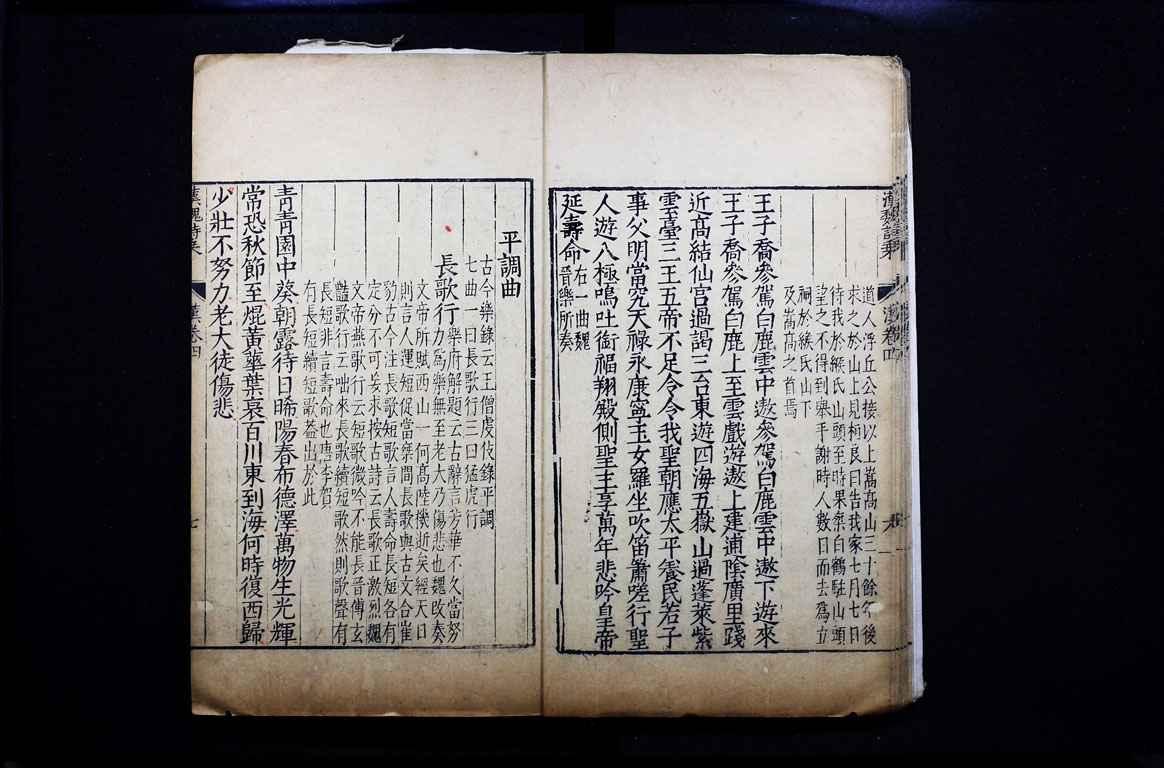 漢魏詩乘
漢卷四
六
道人浮丘公接以上嵩高山三十餘年後
求之於山上見桓良曰告我家七月七日
待我於緱氏山頭至時果乘白鶴駐山頭
望之不得到舉手謝時人數日而去為立
祠於緱氏山下
及嵩高之首焉
王子喬參駕白鹿雲中遨參駕白鹿雲中遨下遊來
王子喬參駕白鹿上至雲戲遊遨上建逋陰廣里踐
近高結仙宮過謁三台東遊四海五嶽山過蓬萊紫
雲臺三王五帝不足令令我聖朝應太平養民若子
事父明當究天祿永康寧玉女羅坐吹笛簫嗟行聖
人遊八極鳴吐銜福翔殿側聖主享萬年悲吟皇帝
延壽命
右一曲魏
晉樂所奏
平調曲
古今樂錄云王僧虔伎錄平調
七曲一曰長歌行三曰猛虎行
長歌行
樂府解題云古辭言芳華不久當努
力為樂無至老大乃傷悲也魏改奏
文帝所賦西山一何高陸機逝矣經天日
則言人運短促當乘間長歌與古文合崔
豹古今注長歌短歌言人壽命長短各有
定分不可妄求按古詩云長歌正激烈魏
文帝燕歌行云短歌微吟不能長晉傅玄
豔歌行云咄來長歌續短歌然則歌聲有
長短非言壽命也唐李賀
有長短續短歌葢出於此
青青園中葵朝露待日晞陽春布德澤萬物生光輝
常恐秋節至焜黃蘤葉衰百川東到海何時復西歸
少壯不努力老大徒傷悲
漢魏詩乘
漢卷四
七